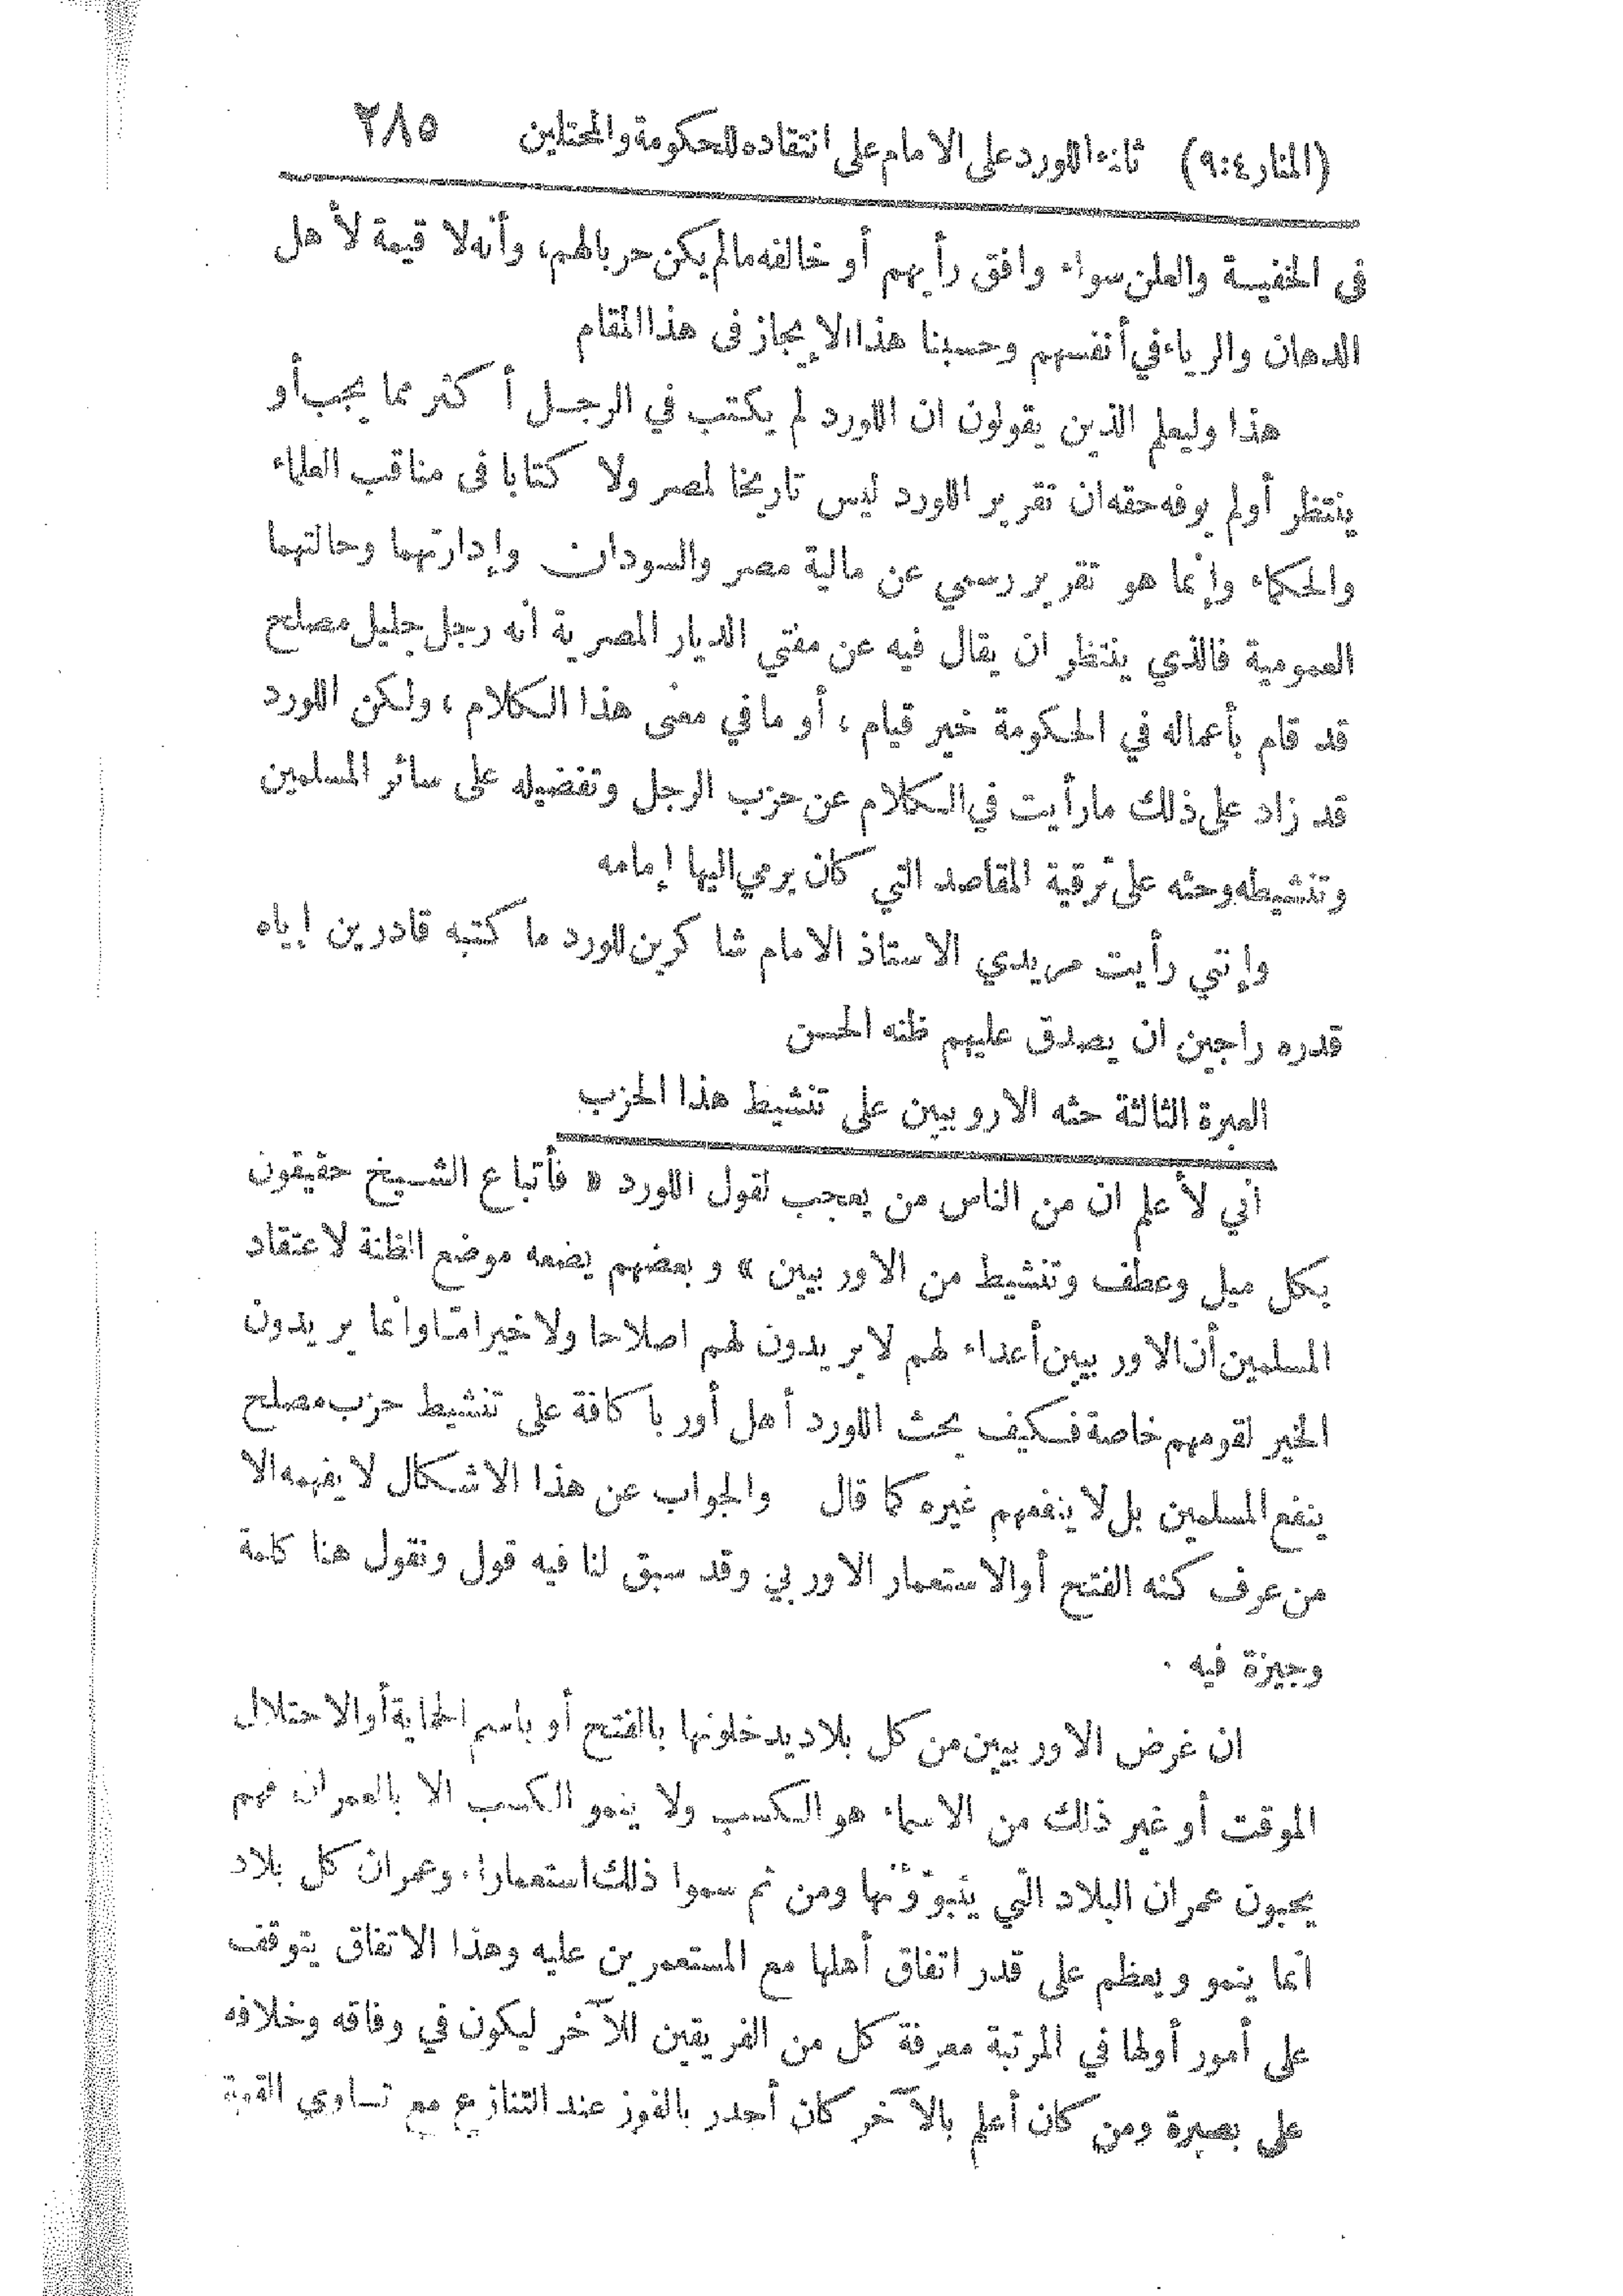 (المنار ٩:٤) ثناء اللورد على الامام على انتقاده للحكومة والمحتلين ٢٨٥
فى الخفيـة والعلن سواء وافق رأيهم أو خالفه مالم يكن حربا لهم، وأنه لا قيمة لأهل
الدهان والرياء في أنفسهم وحسبنا هذا الإيجاز فى هذا المقام
هذا وليعلم الذين يقولون ان اللورد لم يكتب في الرجـل أكثر مما يجب أو
ينتظر أولم يوفه حقه ان تقرير اللورد ليس تاريخا لمصر ولا كتابا فى مناقب العلماء
والحكماء وإنما هو تقرير رسمي عن مالية مصر والسودان وإدارتهما وحالتهما
العمومية فالذي ينتظر ان يقال فيه عن مفتي الديار المصرية انه رجل جليل مصلح
قد قام بأعماله في الحكومة خير قيام، أو ما في معنى هذا الكلام، ولكن اللورد
قد زاد على ذلك ما رأيت في الكلام عن حزب الرجل وتفضيله على سائر المسلمين
وتنشيطه وحثه على ترقية المقاصد التي كان يرمي اليها إمامه
وإنني رأيت مريدي الاستاذ الامام شاكرين للورد ما كتبه قادرين إياه
قدره راجين ان يصدق عليهم ظنه الحسن
العبرة الثالثة حثه الاروبيين على تنشيط هذا الحزب
اني لأعلم ان من الناس من يعجب لقول اللورد « فأتباع الشـيخ حقيقون
بكل ميل وعطف وتنشيط من الاوربيين » وبعضهم يضعه موضع الظنة لاعتقاد
المسلمين أن الاوربيين أعداء لهم لا يريدون لهم اصلاحا ولا خيرا ما وانما يريدون
الخير لقومهم خاصة فكيف يحث اللورد أهل أوربا كافة على تنشيط حزب مصلح
ينفع المسلمين بل لا ينفعهم غيره كما قال والجواب عن هذا الاشكال لا يفهمه الا
من عرف كنه الفتح أوالاستعمار الاوربي وقد سبق لنا فيه قول ونقول هنا كلمة
وجيزة فيه .
ان غرض الاوربيين من كل بلاد يدخلونها بالفتح أو باسم الحماية أو الاحتلال
الموقت أو غير ذلك من الاسماء هو الكسب ولا ينمو الكسب الا بالعمران فهم
يحبون عمران البلاد التي يتبوّؤنها ومن ثم سموا ذلك استعمارا. وعمران كل بلاد
انما ينمو ويعظم على قدر اتفاق أهلها مع المستعمرين عليه وهذا الاتفاق يتوقف
على أمور أولها في المرتبة معرفة كل من الفريقين للآخر ليكون في وفاقه وخلافه
على بصيرة ومن كان أعلم بالآخر كان أجدر بالفوز عند التنازع مع تساوي القوة